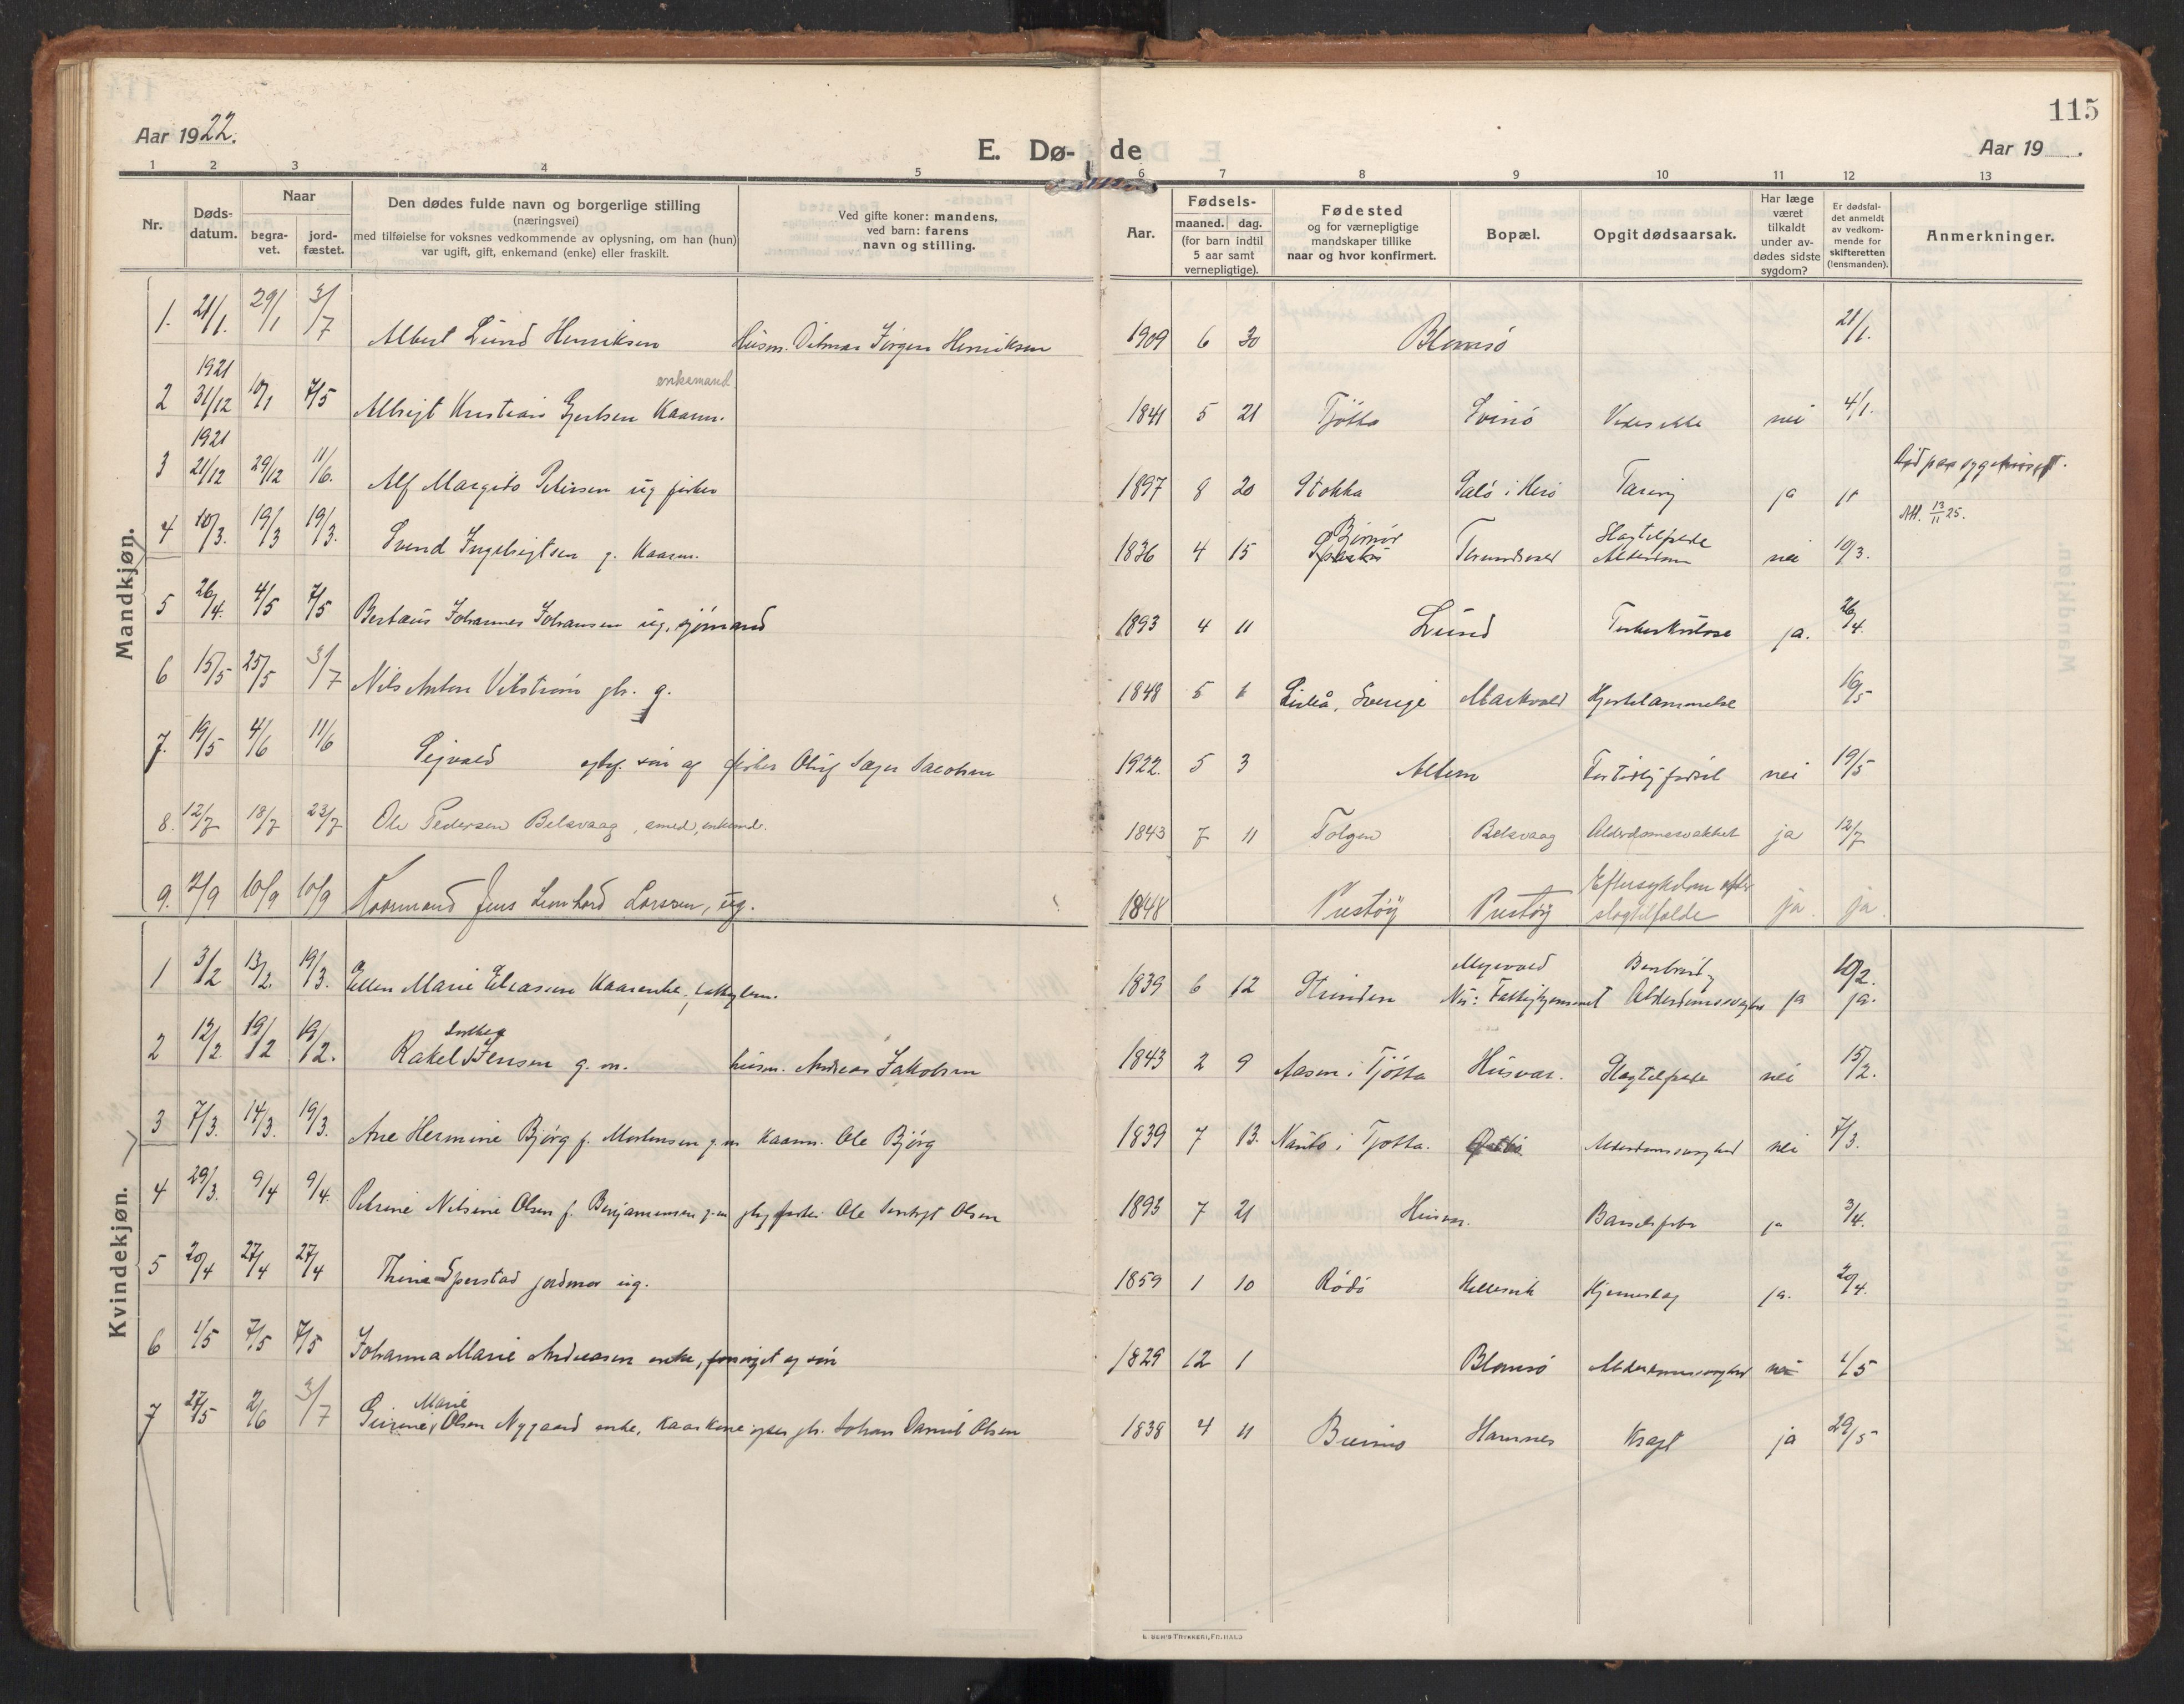 115
Aar 1922.
E. Dø- de
Aar 19 .
1 2 3 4 5 6 7 8 9 10 11 12 13
Nr.
Døds-
datum.
Naar
begra-
vet.
jord-
fæstet.
Den dødes fulde navn og borgerlige stilling
(næringsvei)
med tilføielse for voksnes vedkommende av oplysning, om han (hun)
var ugift, gift, enkemand (enke) eller fraskilt.
Ved gifte koner: mandens,
ved barn: farens
navn og stilling.
Aar.
Fødsels-
maaned. dag.
(for barn indtil
5 aar samt
vernepligtige).
Fødested
og for værnepligtige
mandskaper tillike
naar og hvor konfirmert.
Bopæl.
Opgit dødsaarsak.
Har læge
været
tilkaldt
under av-
dødes sidste
sygdom?
Er dødsfal-
det anmeldt
av vedkom-
mende for
skifteretten
(lensmanden).
Anmerkninger.
Mandkjøn.
1. 21/1. 29/1 3/7 Albert Lund Henriksen Husm. Ditmar Jörgen Henriksen 1909 6 30 Blomsö 21/1.
1921
enkemand
2 31/12 10/1 7/5 Kristian Kaarm. 1841 5 21 Tjötta Svinö Vides ikke nei 4/1.
1921
3 21/12 29/12 11/6. Alf Margido Petersen ug fisker 1897 8 20 Stokka i Herö Tæring ja " Död paa sygehuset.
Att. 13/11 25.
4 10/3. 19/3 19/3. Svend Ingebrigtsen g. Kaarm. 1836 4 15 Björnör Slagtilfælde Alderdom nei 10/3.
5 26/4. 4/5 7/5 Bertæus Johannes Johansen ug. sjömand 1893 4 11 Lund Tuberkulose ja. 26/4.
6 15/5 25/5 3/7 Nils Anton Vikström g. 1848 5 6 Sverige Markvold Hjertelammelse 16/5
7. 19/5 4/6 11/6 Sigvald søn af fisker Oluf Jacobsen 1922. 5 3 Altern For tidlig födsel nei 19/5
8. 12/7 18/7 23/7 Ole Pedersen Belsvaag, smed, enkemd. 1843 7 11 Tolgen Belsvaag Alderdomssvakhet ja 12/7
9. 2/9 10/9 10/9 Kaarmand Jens Leonhard Larssen, ug. 1848 Prestöy Prestöy Eftersykdom efter slagtilfælde ja. ja.
Kvindekjøn.
1 3/2 13/2. 19/3. Ellen Marie Eliassen Kaarenke, 1839 6 12 Strinden Myrvold Nu: Fattighjemmet Benbrud, Alderdomssvaghed ja 10/2. ja.
2 12/2 19/2 19/2. Rakel Jensen g. m. husm. Andreas Jakobsen 1843 2 9 Aasen i Tjötta Husvær. Slagtilfælde nei 15/2.
3 7/3. 14/3. 19/3. Ane Hermine Björg f. Mortensen g. m Kaarm. Ole Björg 1839 7 13. i Tjötta. Alderdomssvaghed nei 7/3.
4 29/3. 9/4 9/4. Petrine Nilsine Olsen f. Benjaminsen g. m fisker Ole Olsen 1893 7 21 Husvær. Barselfeber ja 3/4.
5 20/4 27/4 27/4 Thina Sperstad jordmor ug. 1859 1 10 Rödö Hjerneslag ja. 20/4.
6 1/5 7/5 7/5 Johanna Marie Andreasen enke, forsörget af sön 1829 12 1 Blomsö Alderdomssvaghed nei 1/5
Marie
7 27/5 2/6 3/7 Olsen Nygaard enke, Kaarkone Johan Daniel Olsen 1838 4 11 Hamnes Kræft ja 29/5